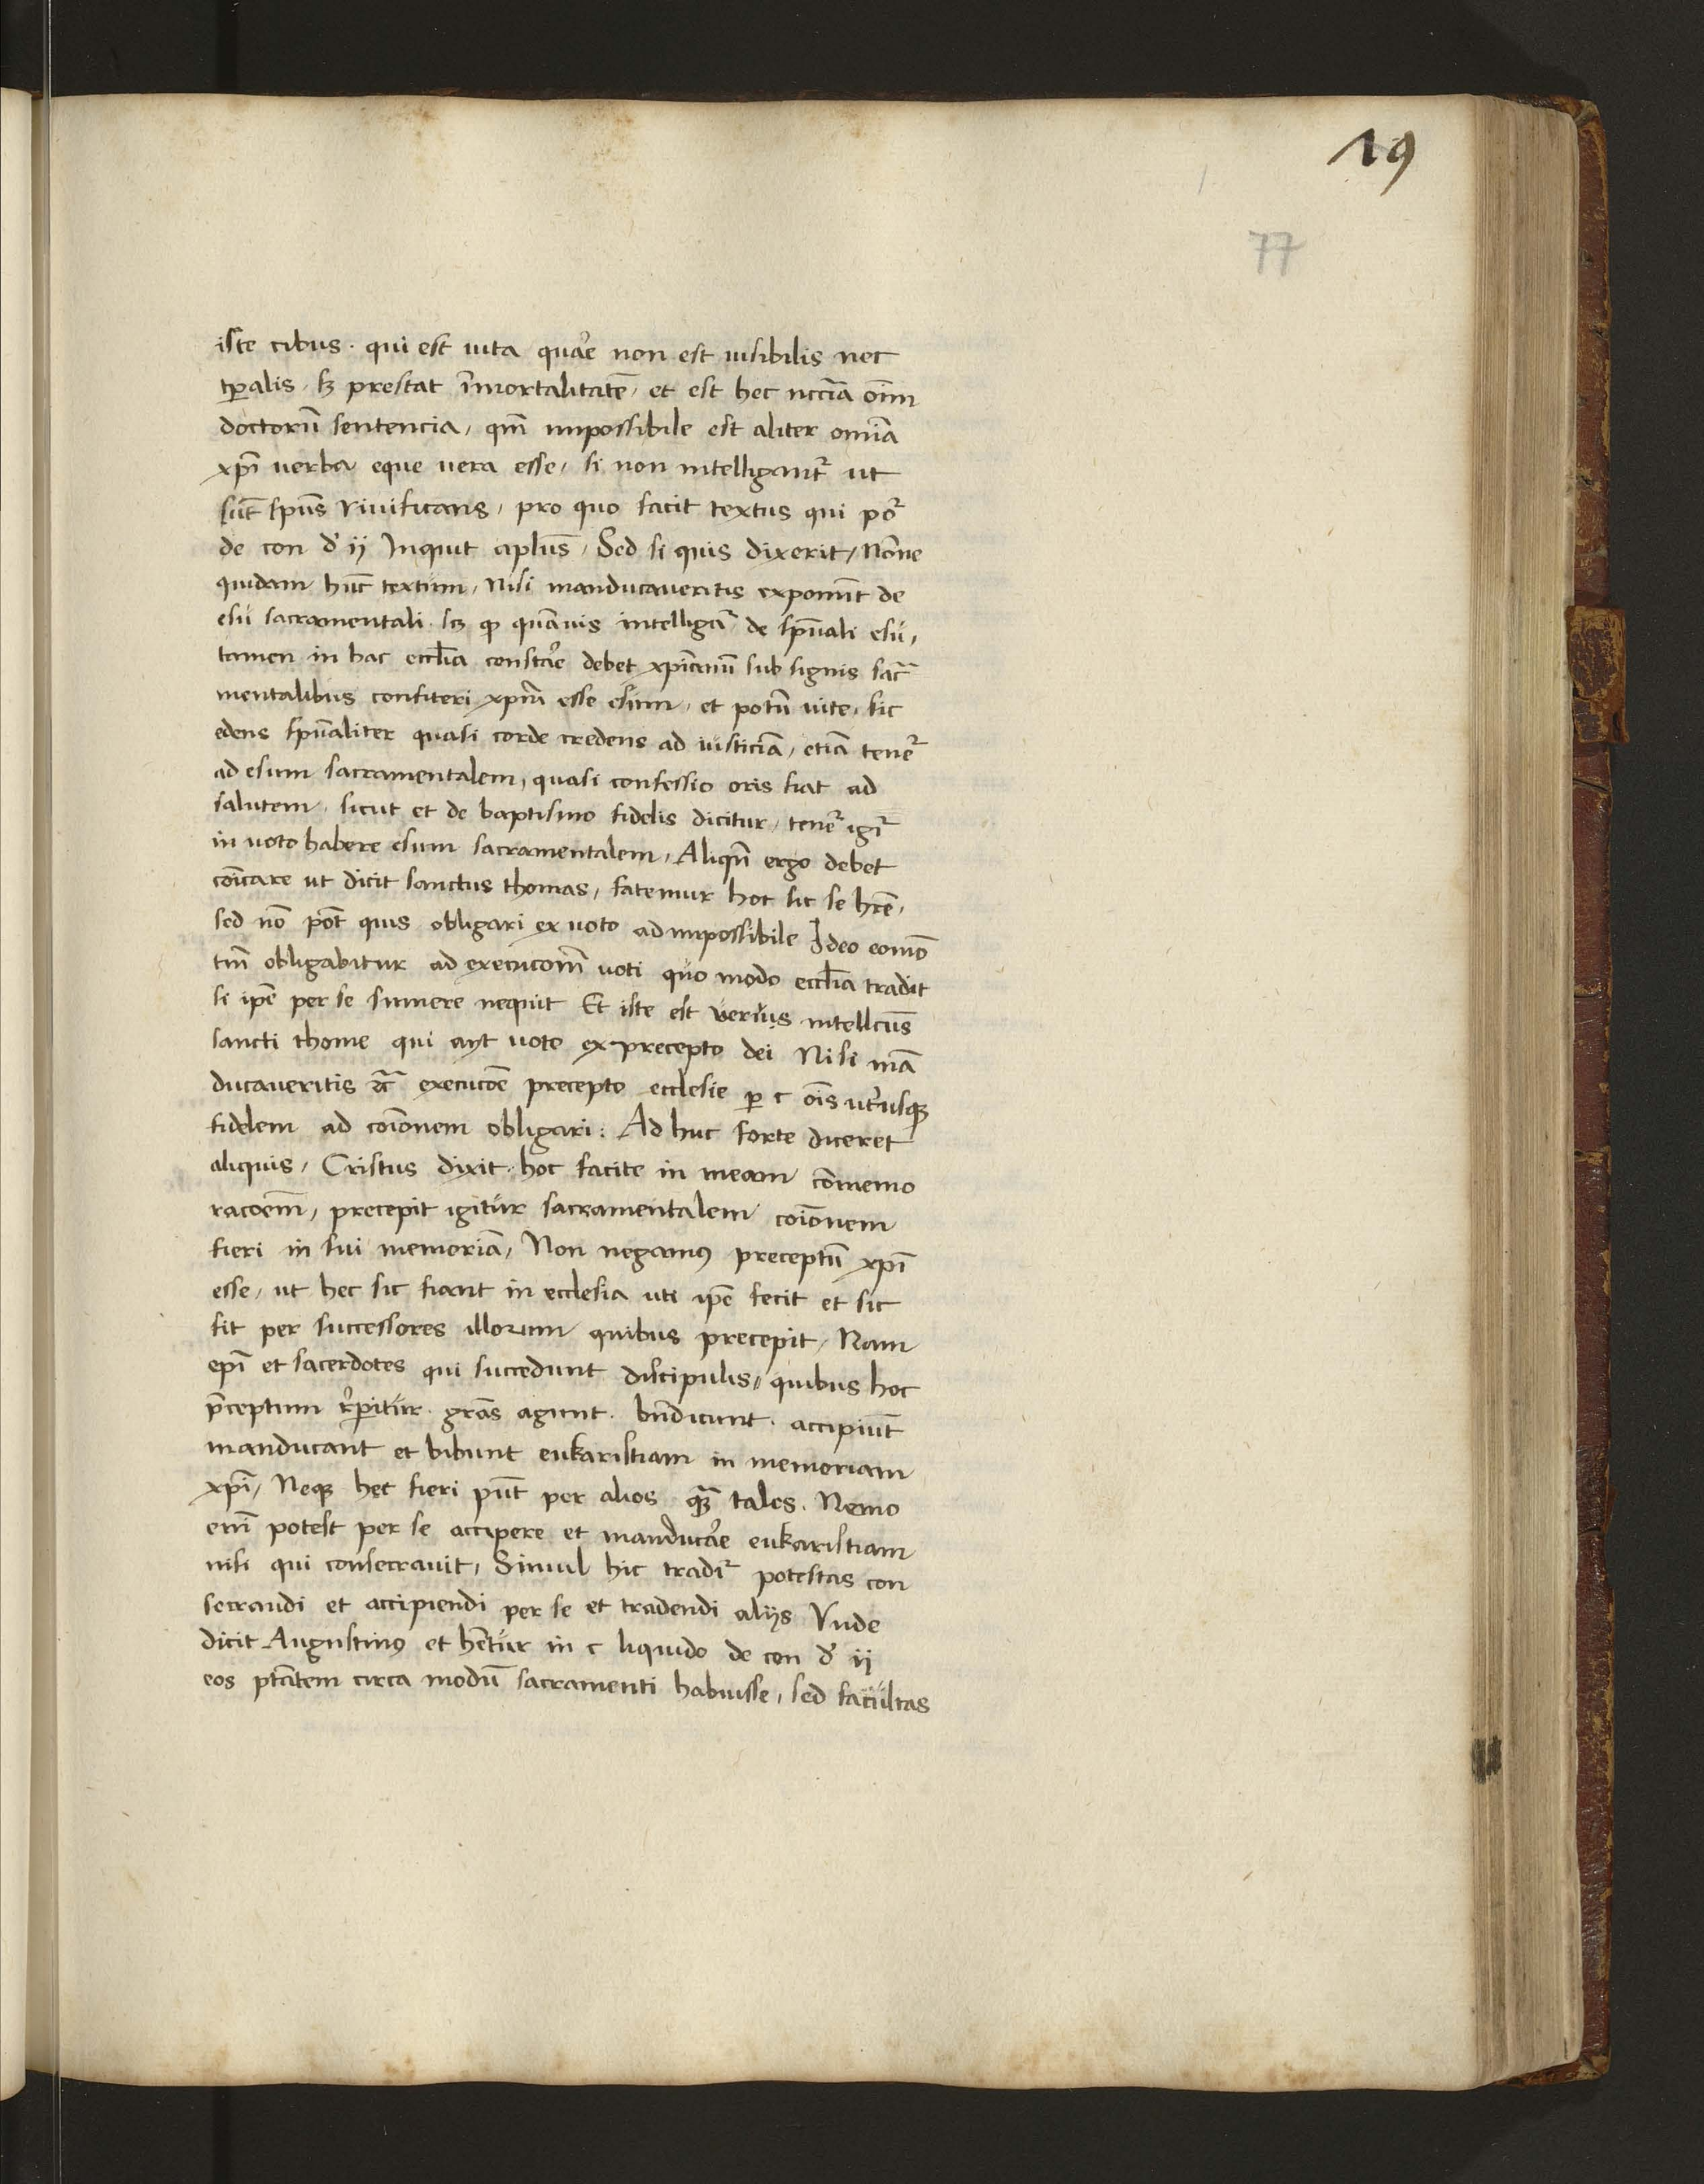 19
77
iste cibus · qui est uita quare non est uisibilis nec
tp̄alis · sꝫ prestat ĩmortalitatē · et est hec nccīa oīm
doctorū sentencia / qm̄ impossibile est aliter omīa
xpī verba eque vera esse / si non intelligant᷑ ut
sūt spūs viuificans / pro quo facit textus qui po᷑
de con d͛ ij Inquit aplūs / Sed si quis dixerit / Nōne
quidam hūc textum / Nisi manducaueritis exponūt de
esu sacramentali · sꝫ ꝙ quāuis intelligat᷑ de spūali esu /
tamen in hac ecclīa constare debet xpīanū sub signis sac᷑
mentalibus confiteri xpm̄ esse esum / et potū vite / sic
edens spūaliter quasi corde credens ad iusticiā / etiā tenet᷑
ad esum sacramentalem / quasi confessio oris fiat ad
salutem / sicut et de baptismo fidelis dicitur / tenet᷑ igit᷑
in voto habere esum sacramentalem / Aliqn̄ ergo debet
cōicare ut dicit sanctus thomas / fatemur hoc sic se hr̄e /
sed nō pōt quis obligari ex voto ad impossibile Ideo eomō
tm̄ obligabitur ad execucōem voti quo modo ecclīa tradit
si ip̄e per se sumere nequit Et iste est verius intellcūs
sancti thome qui ayt voto ex precepto dei Nisi mā
ducaveritis ⁊c̄ execucōe precepto ecclesie ꝑ c oīs utriusqꝫ
fidelem ad cōionem obligari : Ad huc forte diceret
aliquis / Cristus dixit · hoc facite in meam cōmemo
racōem / precepit igitur sacramentalem cōionem
fieri in sui memoriā / Non negamꝰ preceptū xpī
esse / ut hec sic fiant in ecclesia uti ip̄e fecit et sic
fit per successores illorum quibus precepit / Nam
epī et sacerdotes qui succedunt discipulis / quibus hoc
p̄ceptum r̓pitur · grās agunt · bn̄dicunt · accipiūt
manducant et bibunt eukaristiam in memoriam
xpī / Neqꝫ hec fieri pn̄t per alios qꝫ̄ tales · Nemo
enī potest per se accipere et manducare eukaristiam
nisi qui consecrauit / Simul hic tradit᷑ potestas con
secrandi et accipiendi per se et tradendi alijs Vnde
dicit Augustinꝰ et hētur in c liquido de con d͛ ij
eos ptātem circa modū sacramenti habuisse / sed facultas